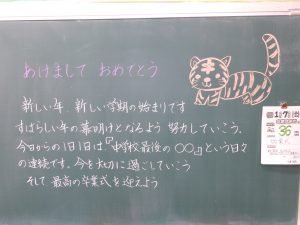 あけまして おめでとう
新しい年 新しい学期の始まりです
すばらしい年の幕明けとなるよう 努力していこう。
今日からの1日1日は『中学校最後の○○』という日々
の連続です。今を大切に過ごしていこう
そして 最高の卒業式を迎えよう
36